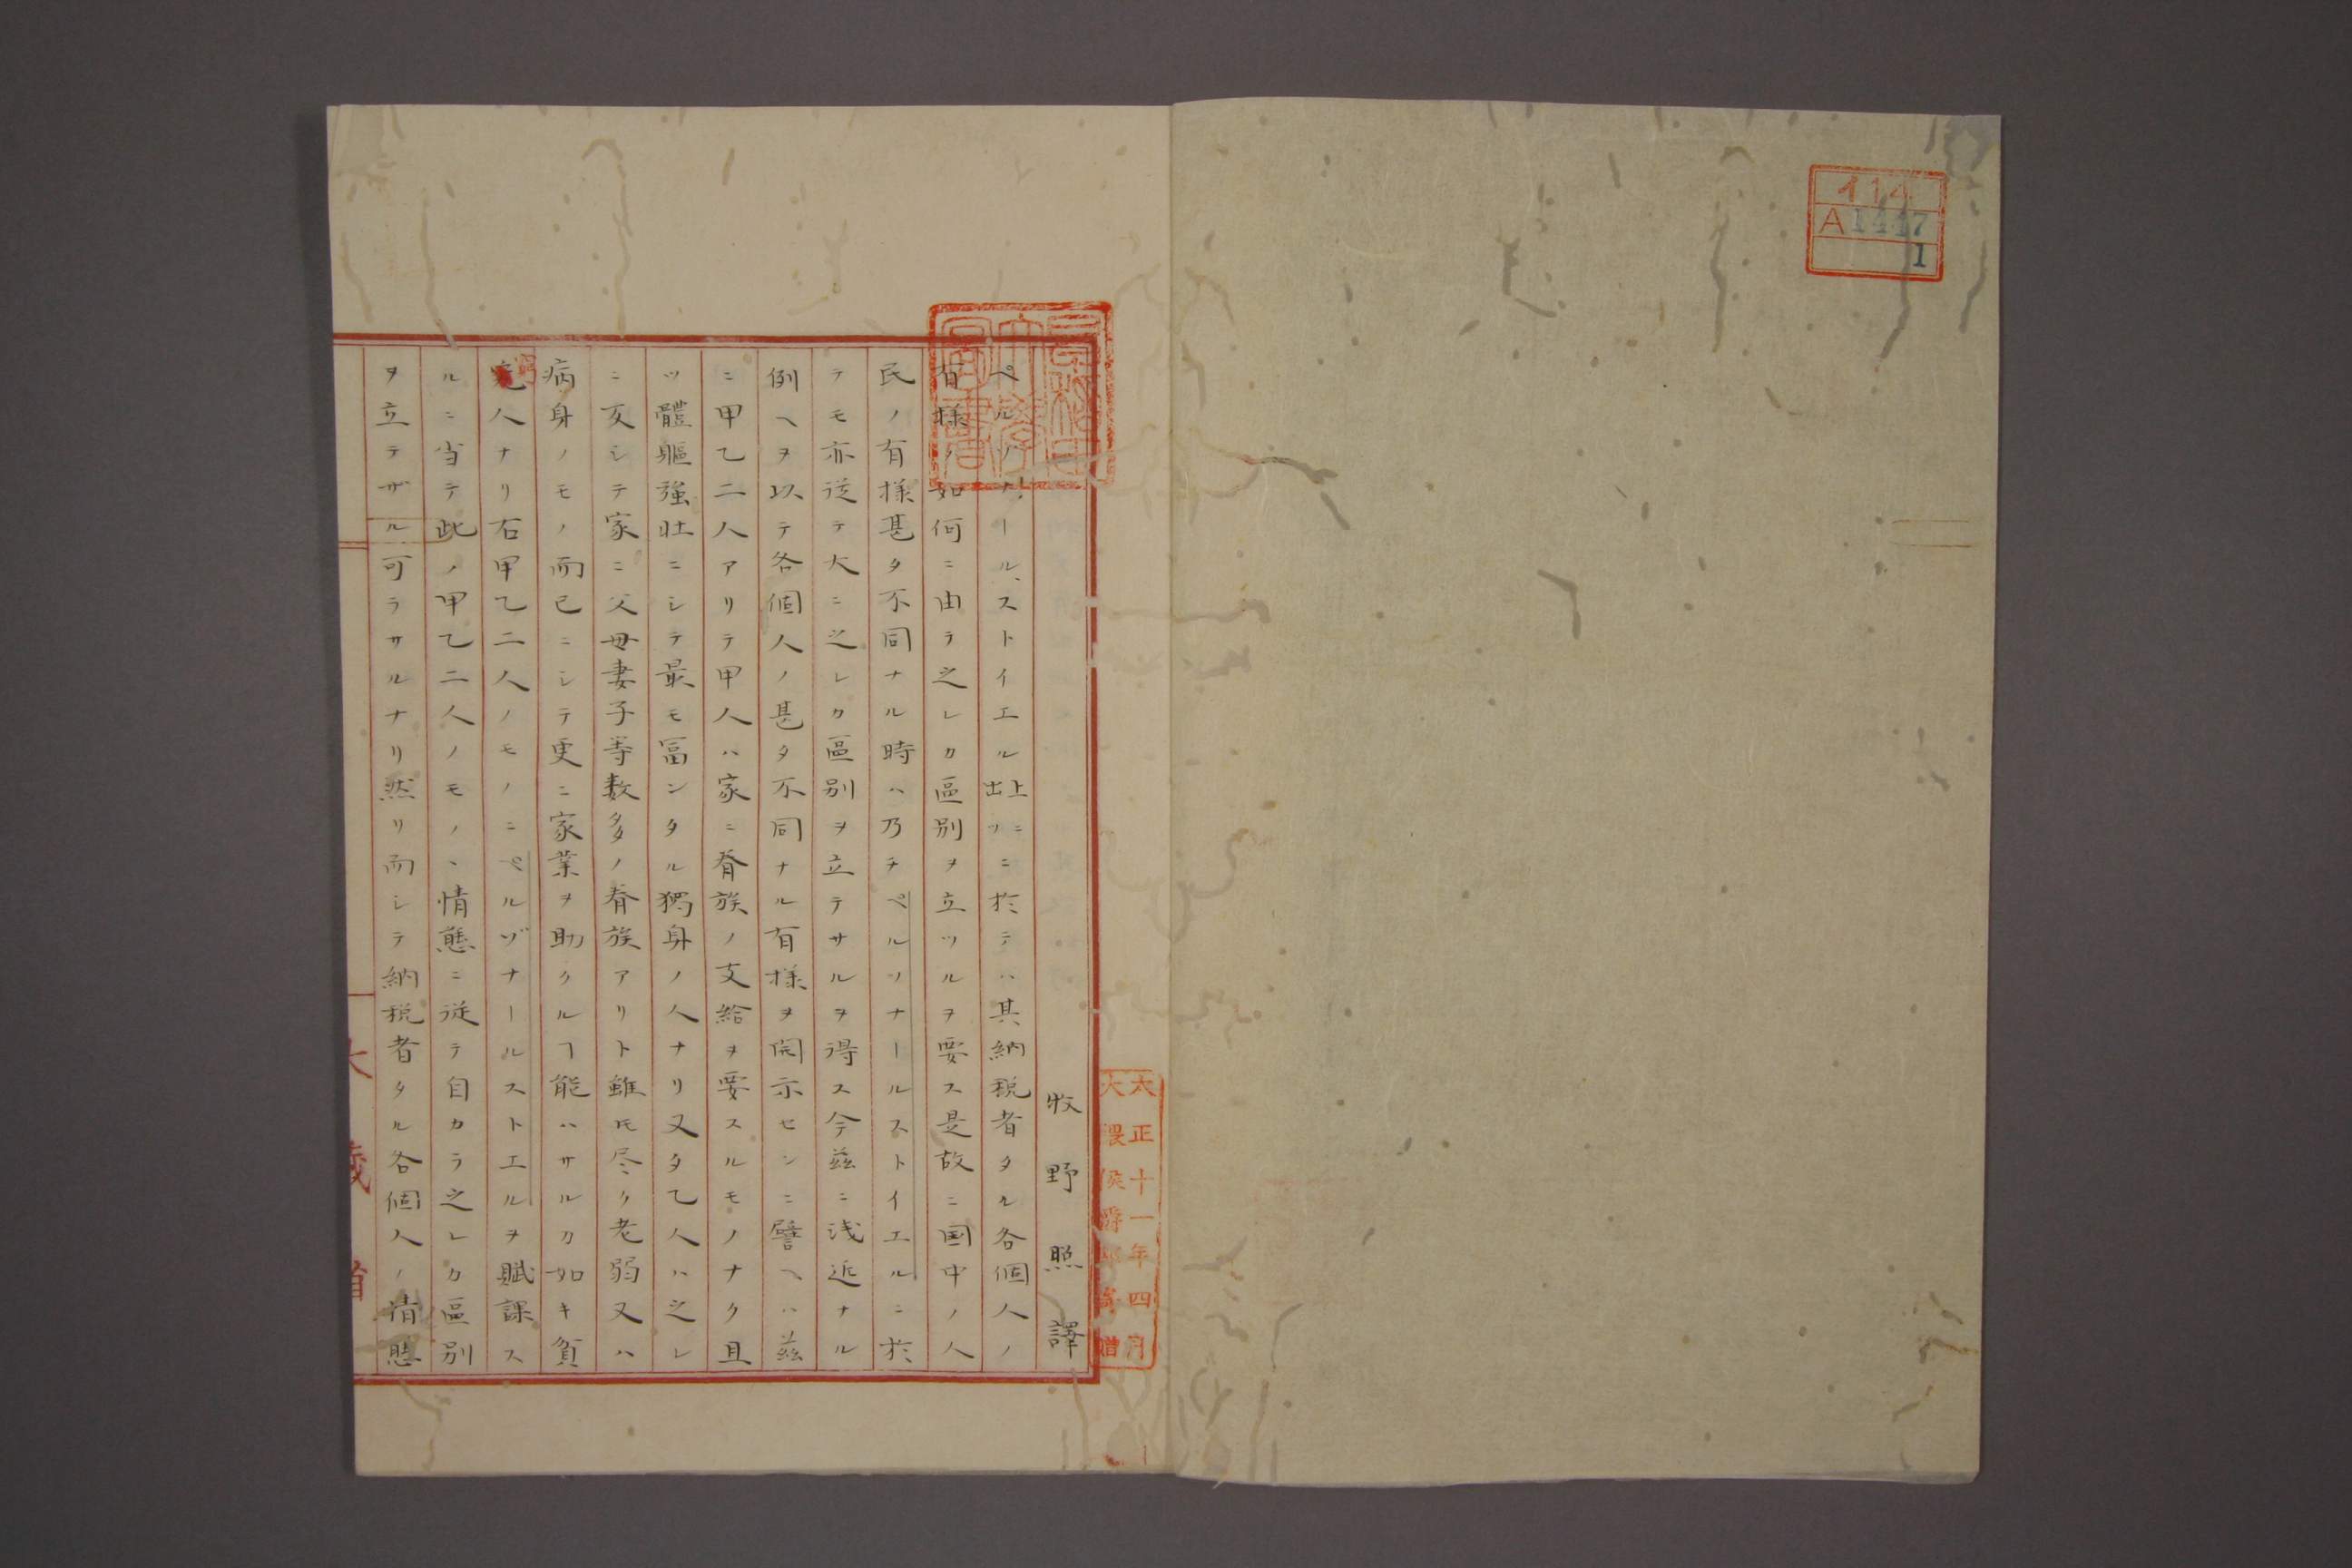 イ14
A1447
1
大正十一年四月
大隈侯爵邸寄贈
早稲田
大學
圖書
牧野照譯
ペルソナールストイエル上ニ出ツニ於テハ其納税者タル各個人ノ
有様ノ如何ニ由テ之レカ區別ヲ立ツルヲ要ス是故ニ国中ノ人
民ノ有様甚タ不同ナル時ハ乃チペルソナールストイエルニ於
テモ亦従テ大ニ之レカ區別ヲ立テサルヲ得ス今茲ニ浅近ナル
例ヘヲ以テ各個人ノ甚タ不同ナル有様ヲ開示センニ譬ヘハ茲
ニ甲乙二人アリテ甲人ハ家ニ眷族ノ支給ヲ要スルモノナク且
ツ體軀強壮ニシテ最モ冨ンタル獨身ノ人ナリ又タ乙人ハ之レ
ニ反シテ家ニ父母妻子等数多ノ眷族アリト雖ㇳモ尽ク老弱又ハ
病身ノモノ而已ニシテ更ニ家業ヲ助クルヿ能ハサルカ如キ貧
窮人ナリ右甲乙二人ノモノニペルゾナールストエルヲ賦課ス
ルニ当テ此ノ甲乙二人ノモノヽ情態ニ従テ自カラ之レカ區別
ヲ立テザル可ラサルナリ然リ而シテ納税者タル各個人ノ情態
大蔵省